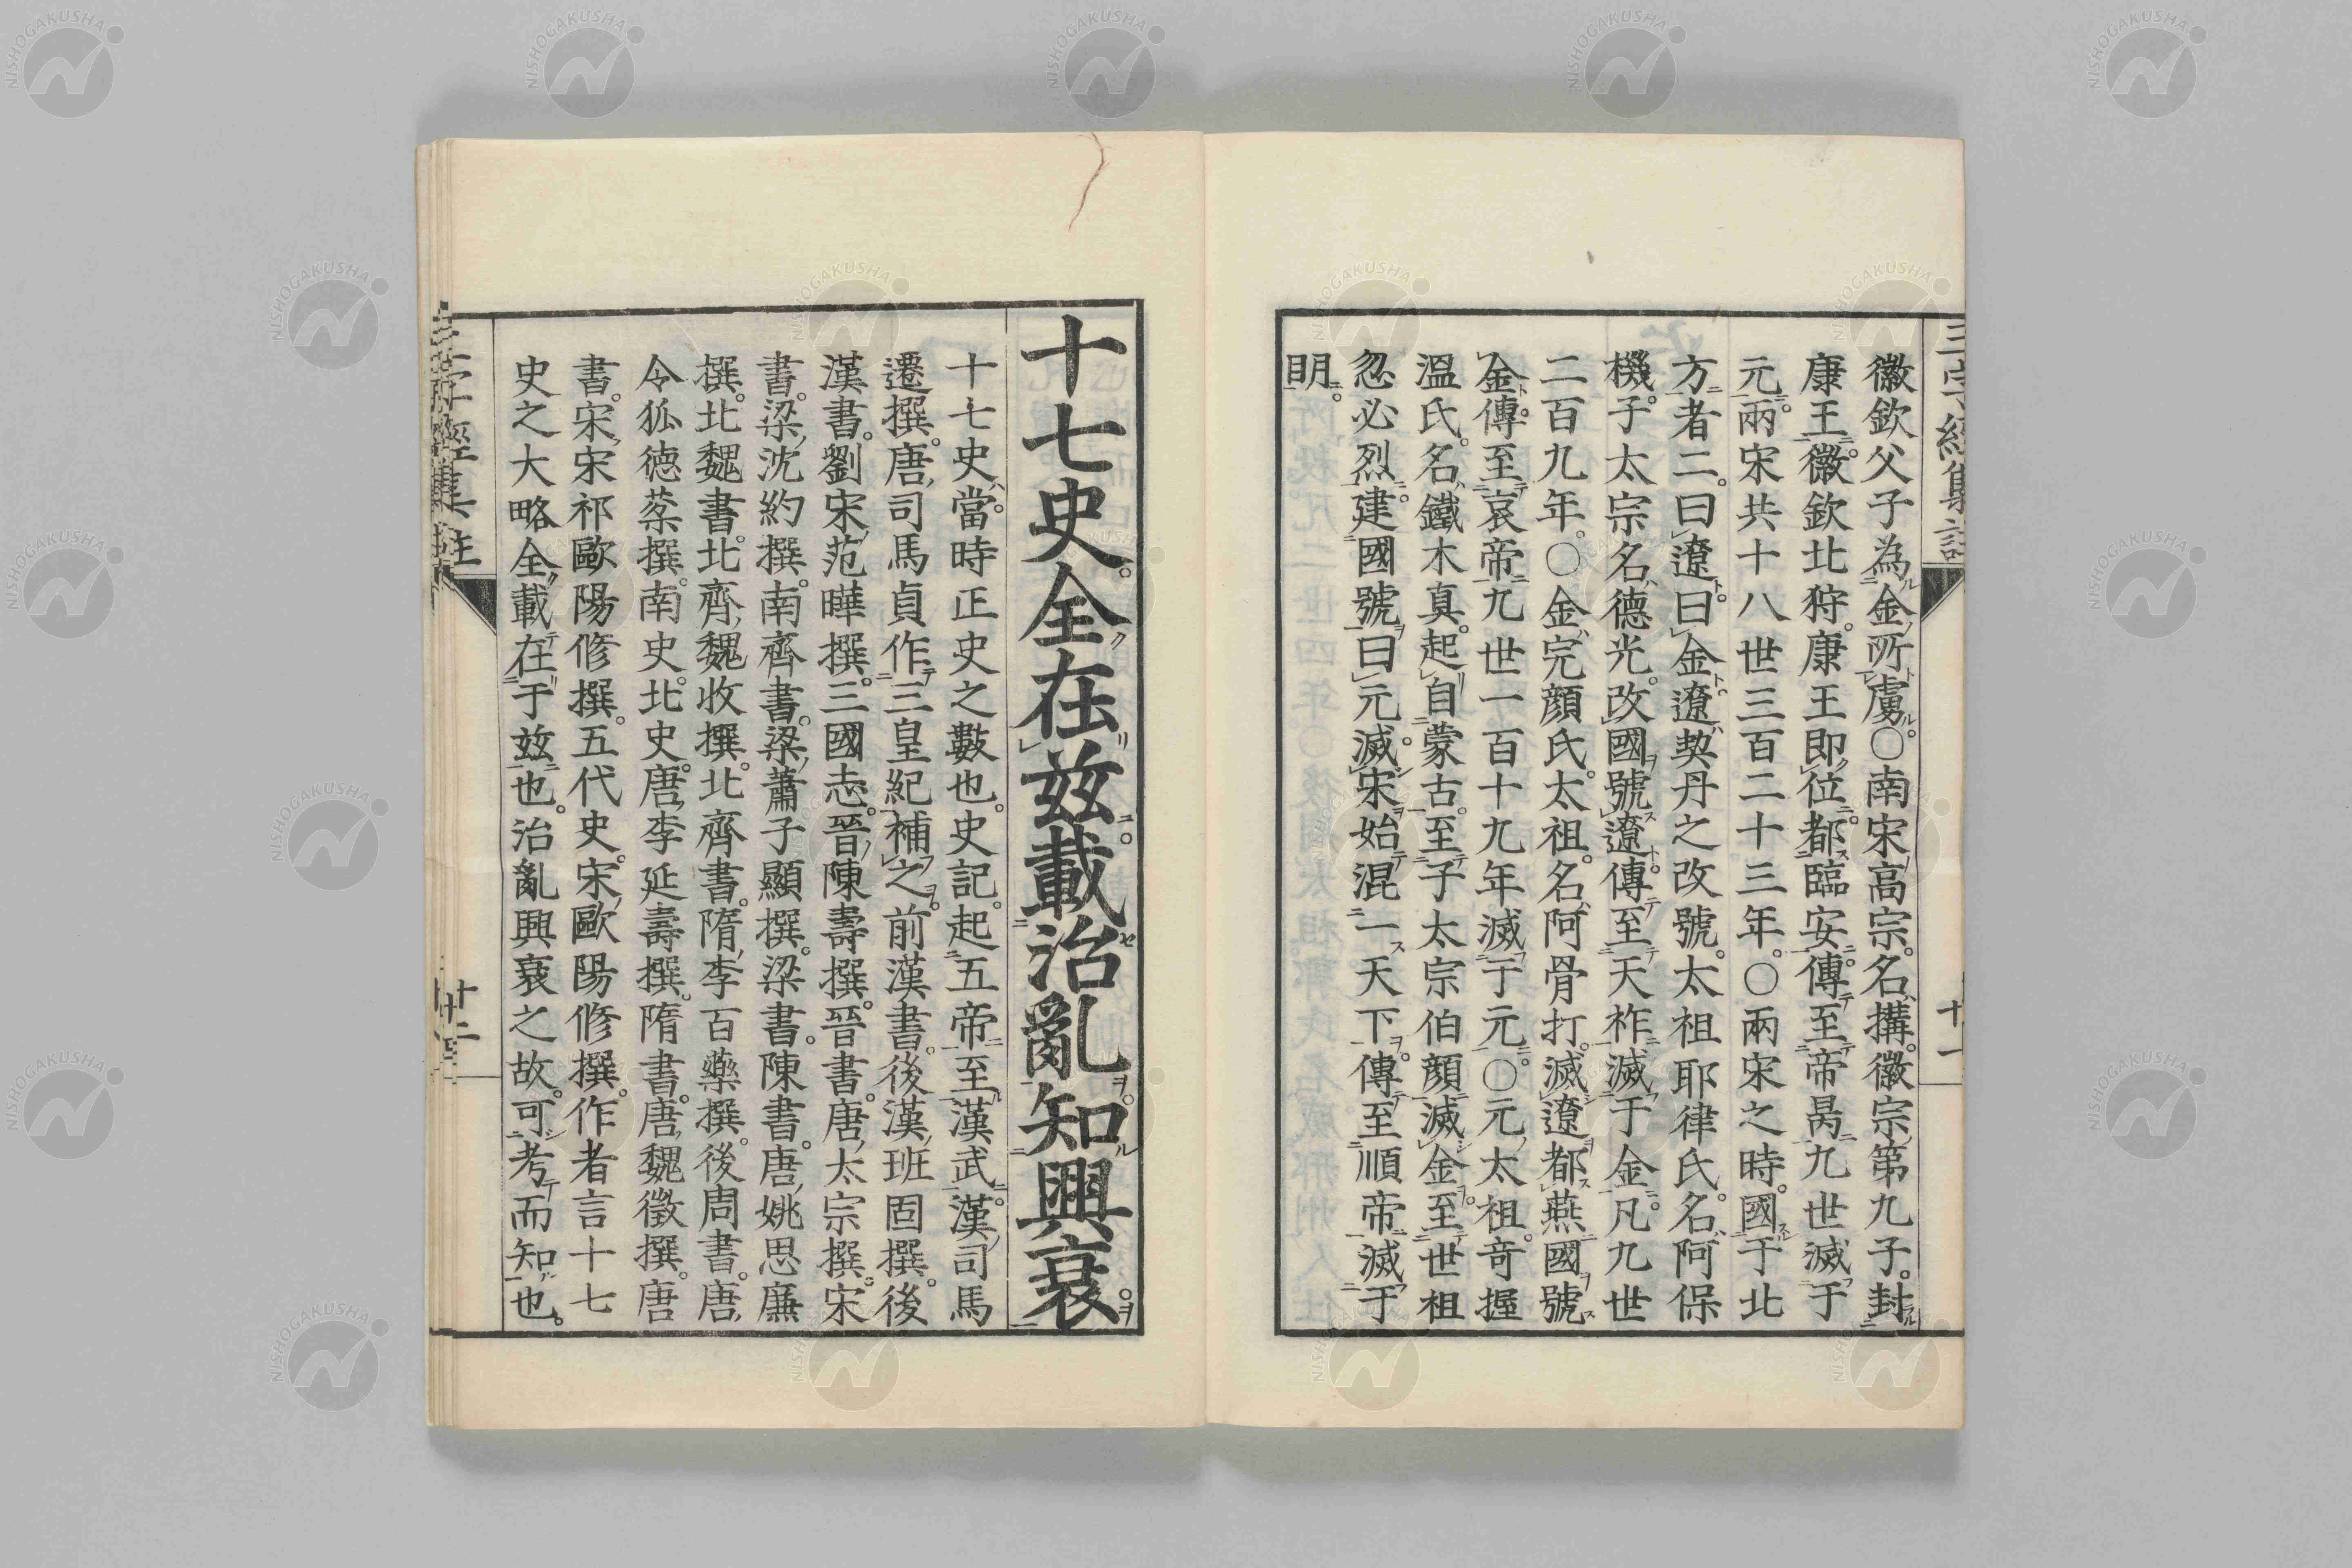 三字經集註
徽欽父子為金所虜○南宋高宗名搆徽宗第九子封
康王徽欽北狩康王即位都臨安傳至帝昺九世滅于
元兩宋共十八世三百二十三年○兩宋之時國于北
方者二曰遼曰金遼契丹之改號太祖耶律氏名阿保
機子太宗名德光改國號遼傳至天祚滅于金凡九世
二百九年○金完顔氏太祖名阿骨打滅遼都燕國號
金傳至哀帝九世一百十九年滅于元○元太祖竒握
溫氏名鐵木真起自蒙古至子太宗伯顔滅金至世祖
忽必烈建國號曰元滅宋始混一天下傳至順帝滅于
明
十七史全在玆載治亂知興衰
十七史當時正史之數也史記起五帝至漢武漢司馬
遷撰唐司馬貞作三皇紀補之前漢書後漢班固撰後
漢書劉宋范曄撰三國志晉陳壽撰晉書唐太宗撰宋
書梁沈約撰南齊書梁蕭子顯撰梁書陳書唐姚思廉
撰北魏書北齊魏收撰北齊書隋李百藥撰後周書唐
令狐德棻撰南史北史唐李延壽撰隋書唐魏徵撰唐
書宋宋祁歐陽修撰五代史宋歐陽修撰作者言十七
史之大略全載在于玆也治亂興衰之故可考而知也
三字經集註
十二
NISHOGAKUSHA